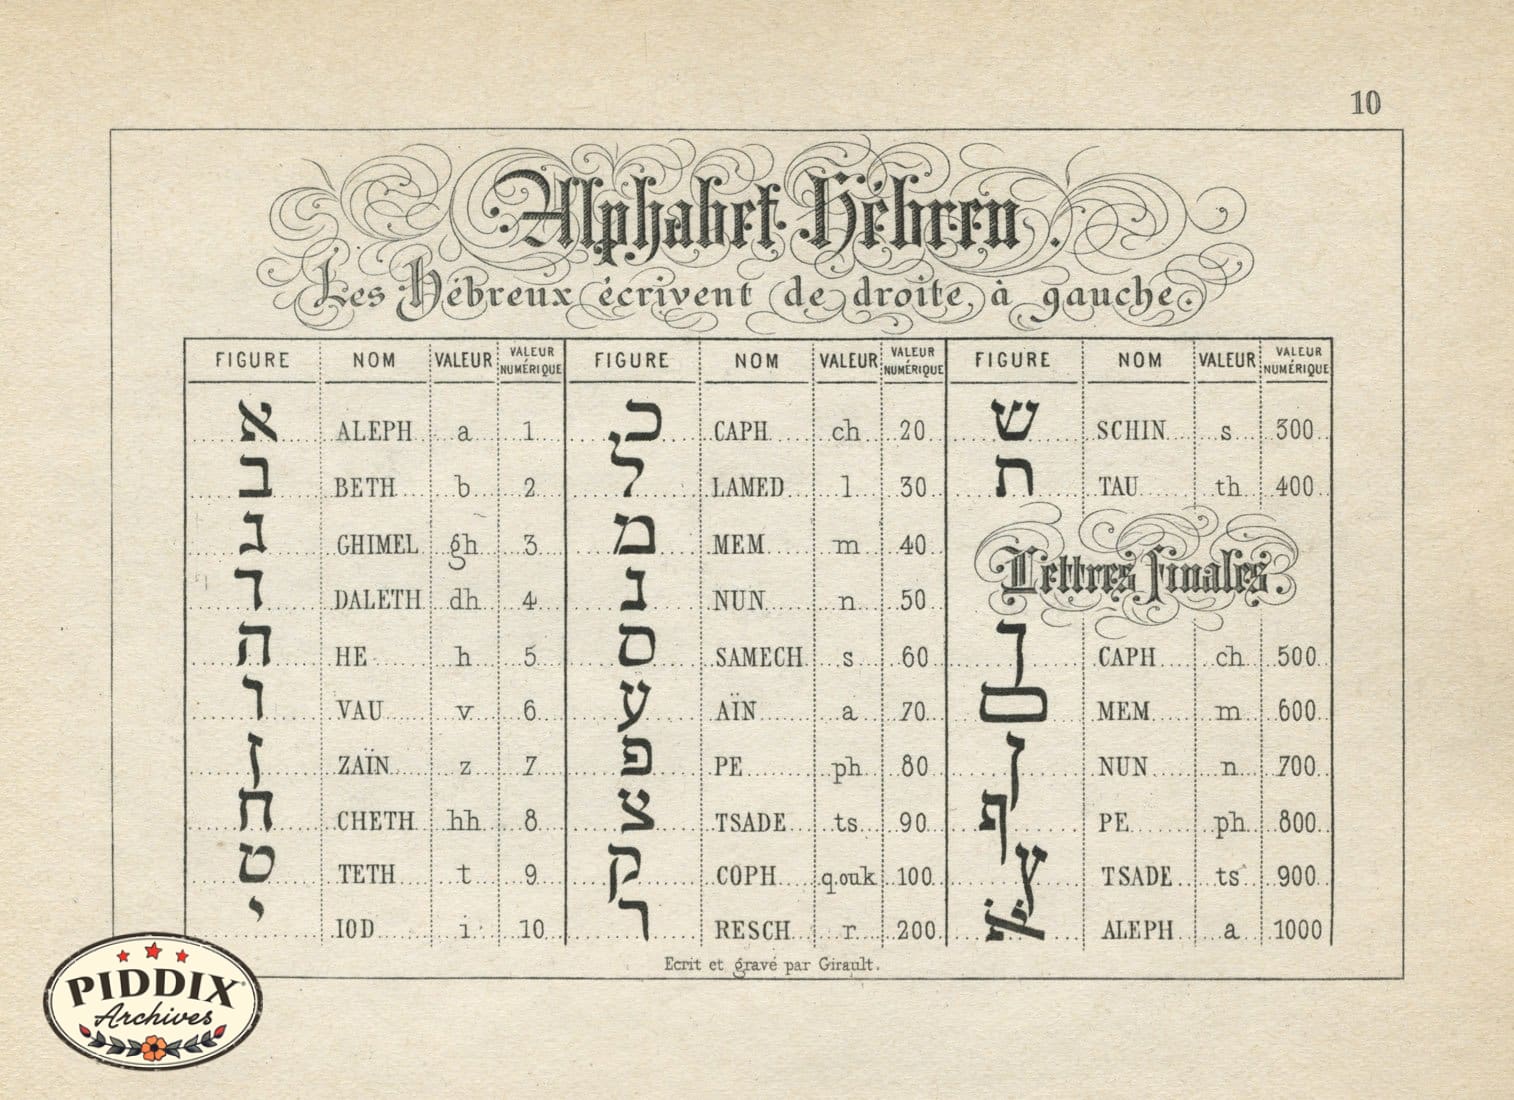 10
Alphabet Hébreu.
Les Hébreux écrivent de droite, à gauche.
FIGURE NOM VALEUR VALEUR NUMÉRIQUE FIGURE NOM VALEUR VALEUR NUMÉRIQUE FIGURE NOM VALEUR VALEUR NUMÉRIQUE
א ALEPH a 1 כ CAPH ch 20 ש SCHIN s 300
ב BETH b 2 ל LAMED l 30 ת TAU th 400
ג GHIMEL gh 3 מ MEM m 40 Lettres finales.
ד DALETH dh 4 נ NUN n 50
ה HE h 5 ס SAMECH s 60 ך CAPH ch 500
ו VAU v 6 ע AÏN a 70 ם MEM m 600
ז ZAÏN z 7 פ PE ph 80 ן NUN n 700
ח CHETH hh 8 צ TSADE ts 90 ף PE ph 800
ט TETH t 9 ק COPH q.ouk 100 ץ TSADE ts 900
י IOD i 10 ר RESCH r 200 א ALEPH a 1000
Ecrit et gravé par Girault.
PIDDIX
Archives